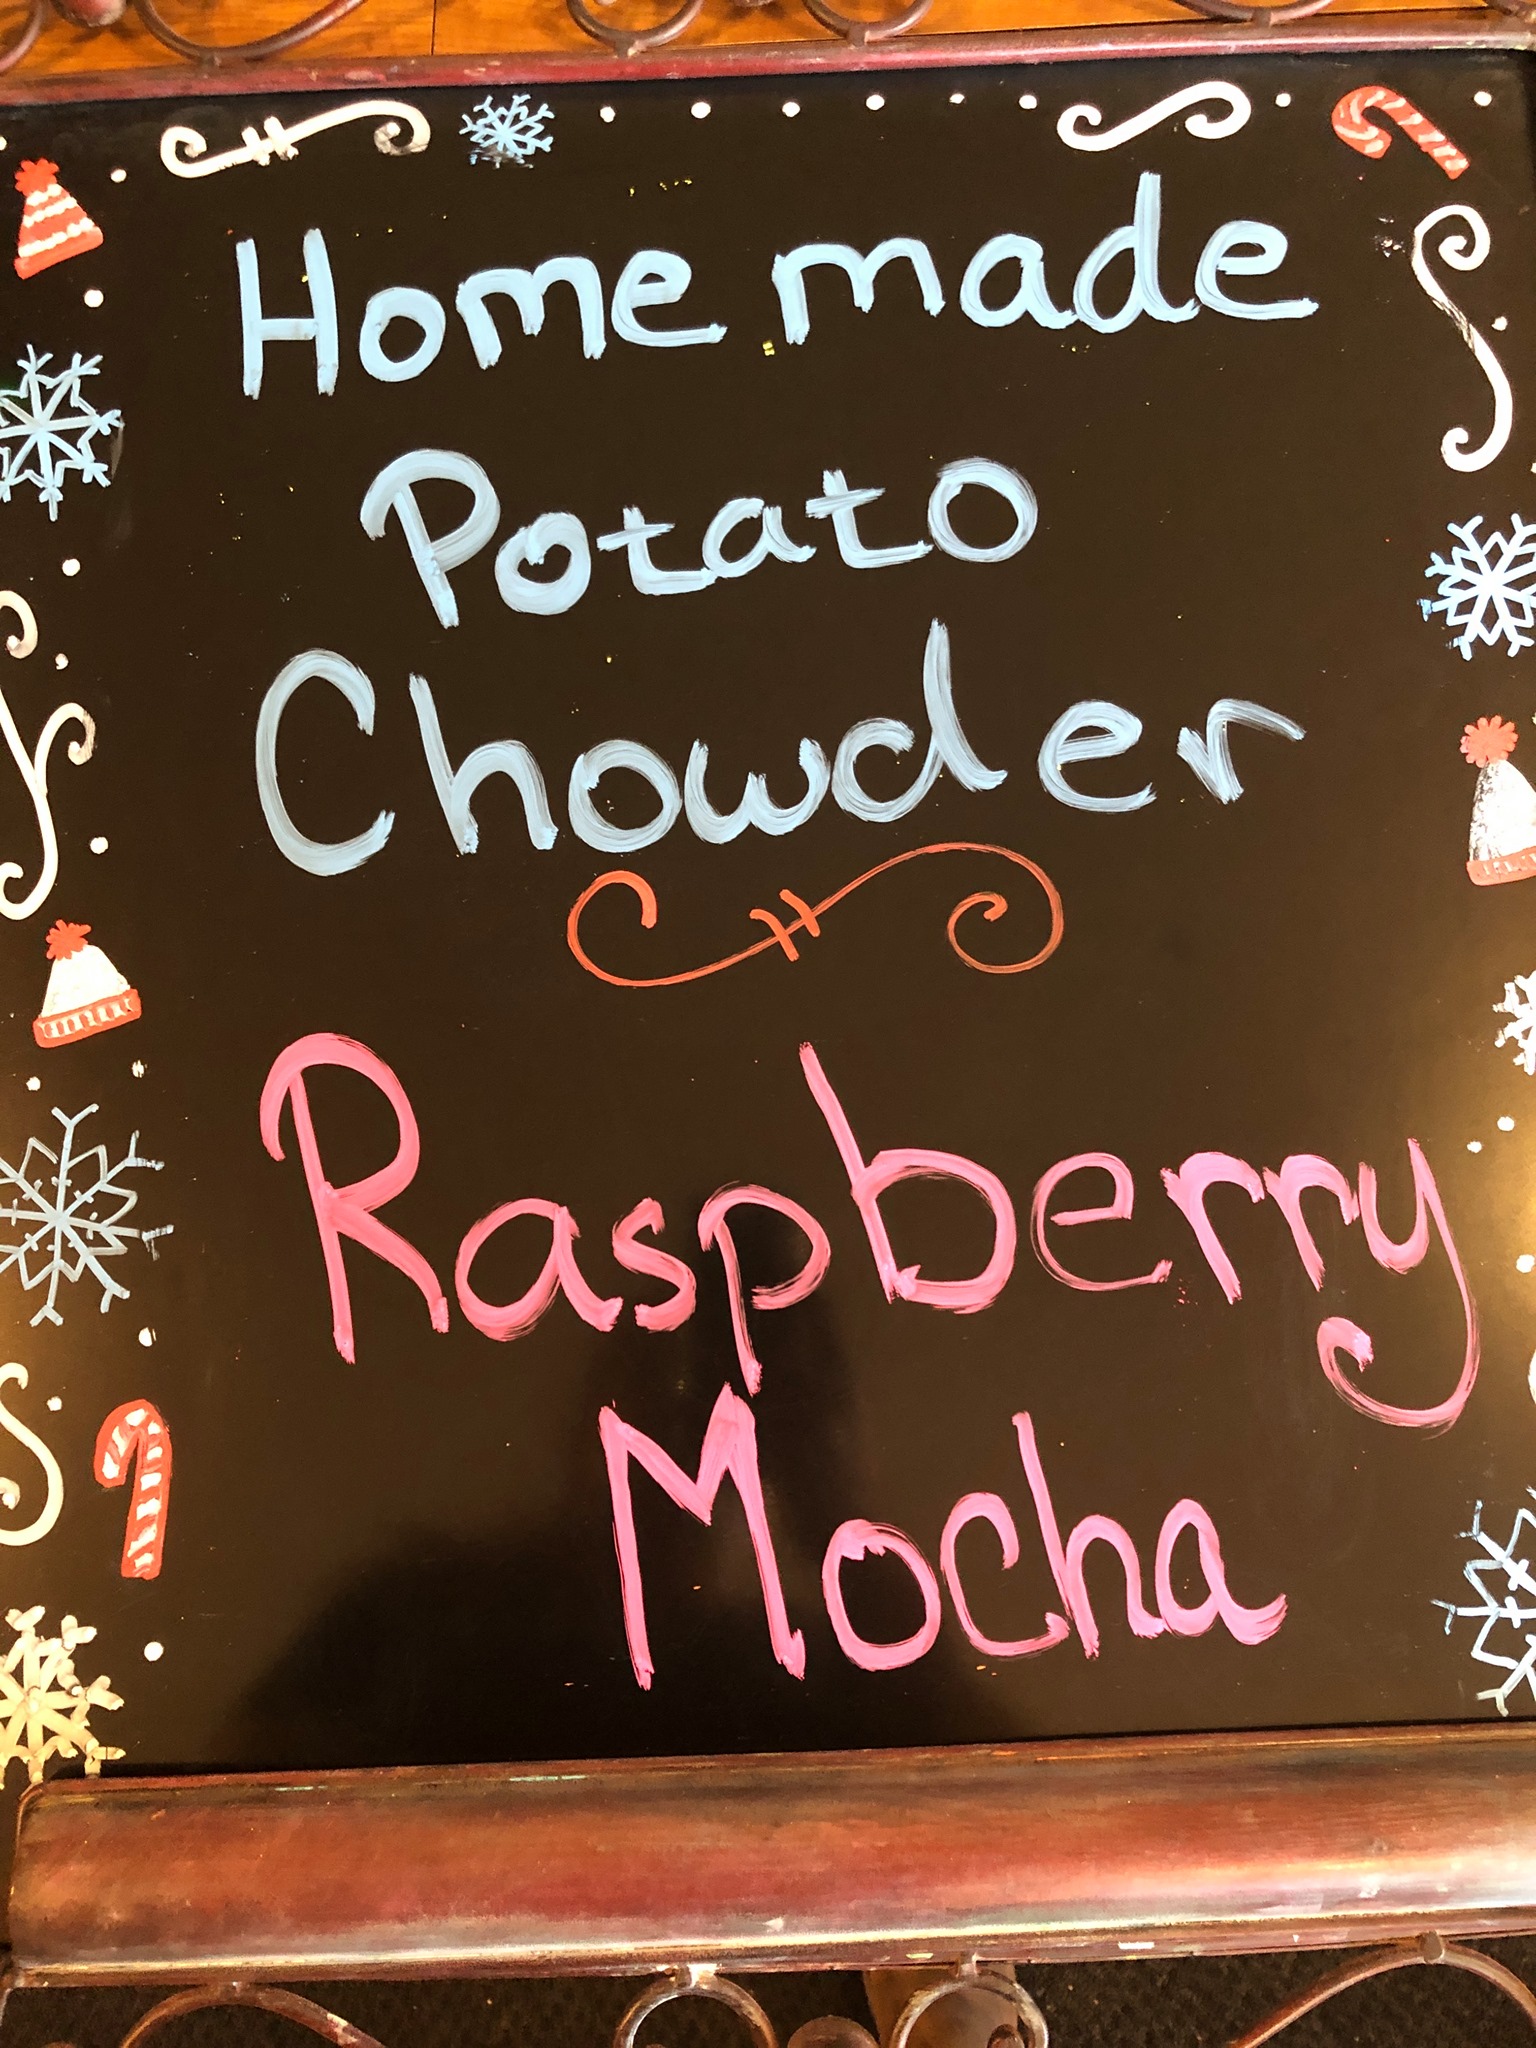 Homemade
Potato
Chowder
Raspberry
Mocha